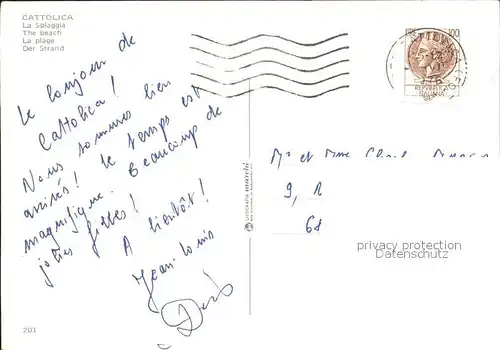 CATTOLICA
La Spiaggia
The beach
La plage
Der Strand
Le bonjour de
Cattolica!
Nous sommes bien
arrivés! Le temps est
magnifique. Beaucoup de
jolies filles!
A bientôt!
Jean-Louis
201
100
REPVBBLICA
ITALIANA
Mr et Mme
9, R
68
privacy protection
Datenschutz